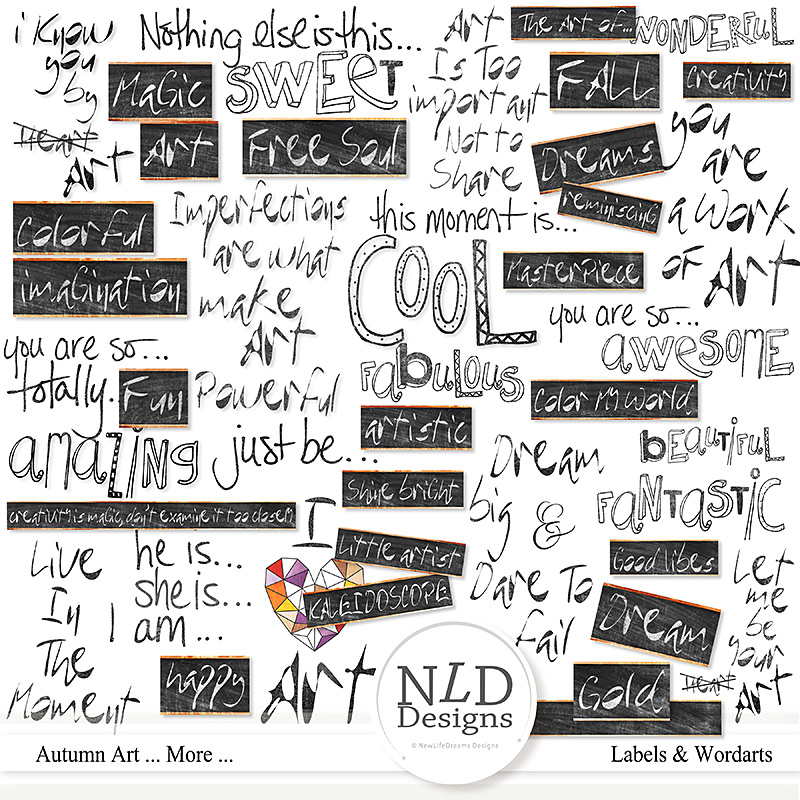 i Know
you
by
Heart
Art
Nothing else is this...
SWEET
Magic
Art
Free Soul
Art
Is Too
important
Not to
Share
The Art of...
WONDERFUL
FALL
Creativity
Dreams
reminiscing
you
are
a Work
of Art
Colorful
imagination
Imperfections
are what
make
Art
this moment is...
COOL
Masterpiece
you are so...
awesome
you are so...
totally.
Fun
Powerful
fabulous
Color My World
artistic
amazing
just be...
Shine bright
Dream
big &
Dare To
Fail
beautiful
FANTASTIC
creativity is magic, don't examine it too closely
I
Little artist
KALEIDOSCOPE
Art
Live
In
The
Moment
he is...
she is...
I am...
happy
Good Vibes
Dream
Let
me
be
your
Heart
Art
Gold
NLD
Designs
© NewLifeDreams Designs
Autumn Art ... More ...
Labels & Wordarts